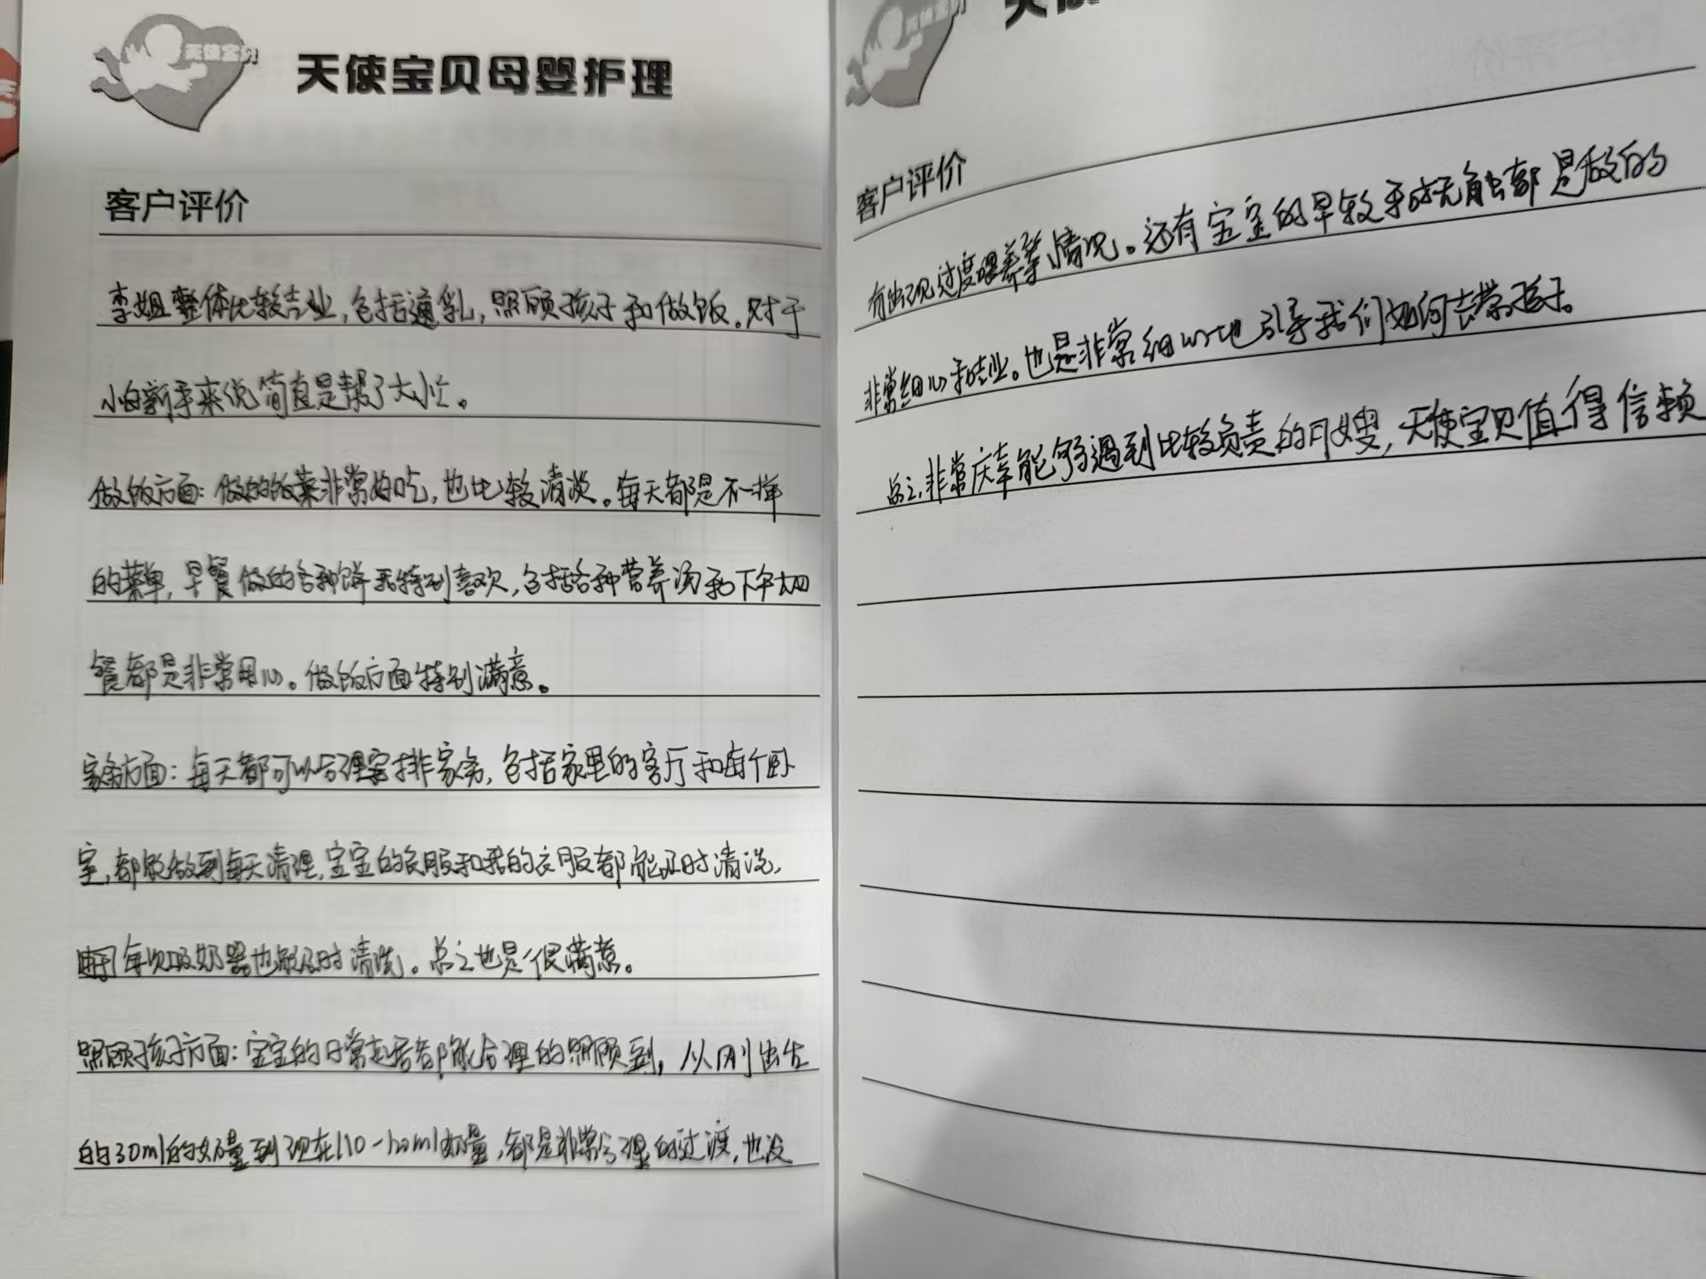 天使宝贝
天使宝贝母婴护理
客户评价
李姐整体比较专业,包括通乳,照顾孩子和做饭。对于
小白新手来说简直是帮了大忙。
做饭方面:做的饭菜非常好吃,也比较清淡。每天都是不一样
的菜单,早餐做的各种饼我特别喜欢,包括各种营养汤和下午加
餐都是非常用心。做饭方面特别满意。
家务方面:每天都可以合理安排家务,包括家里的客厅和每个卧
室,都能做到每天清理,宝宝的衣服和我的衣服都能及时清洗,
每次吸奶器也能及时清洗。总之也是很满意。
照顾孩子方面:宝宝的日常起居都能合理的照顾到,从刚出生
的30ml的奶量到现在110-120ml奶量,都是非常合理的过渡,也没
客户评价
有出现过度喂养等情况。还有宝宝的早教和都是做的
非常细心和专业。也是非常细心地引导我们如何去带孩子。
总之,非常庆幸能够遇到比较负责的月嫂,天使宝贝值得信赖